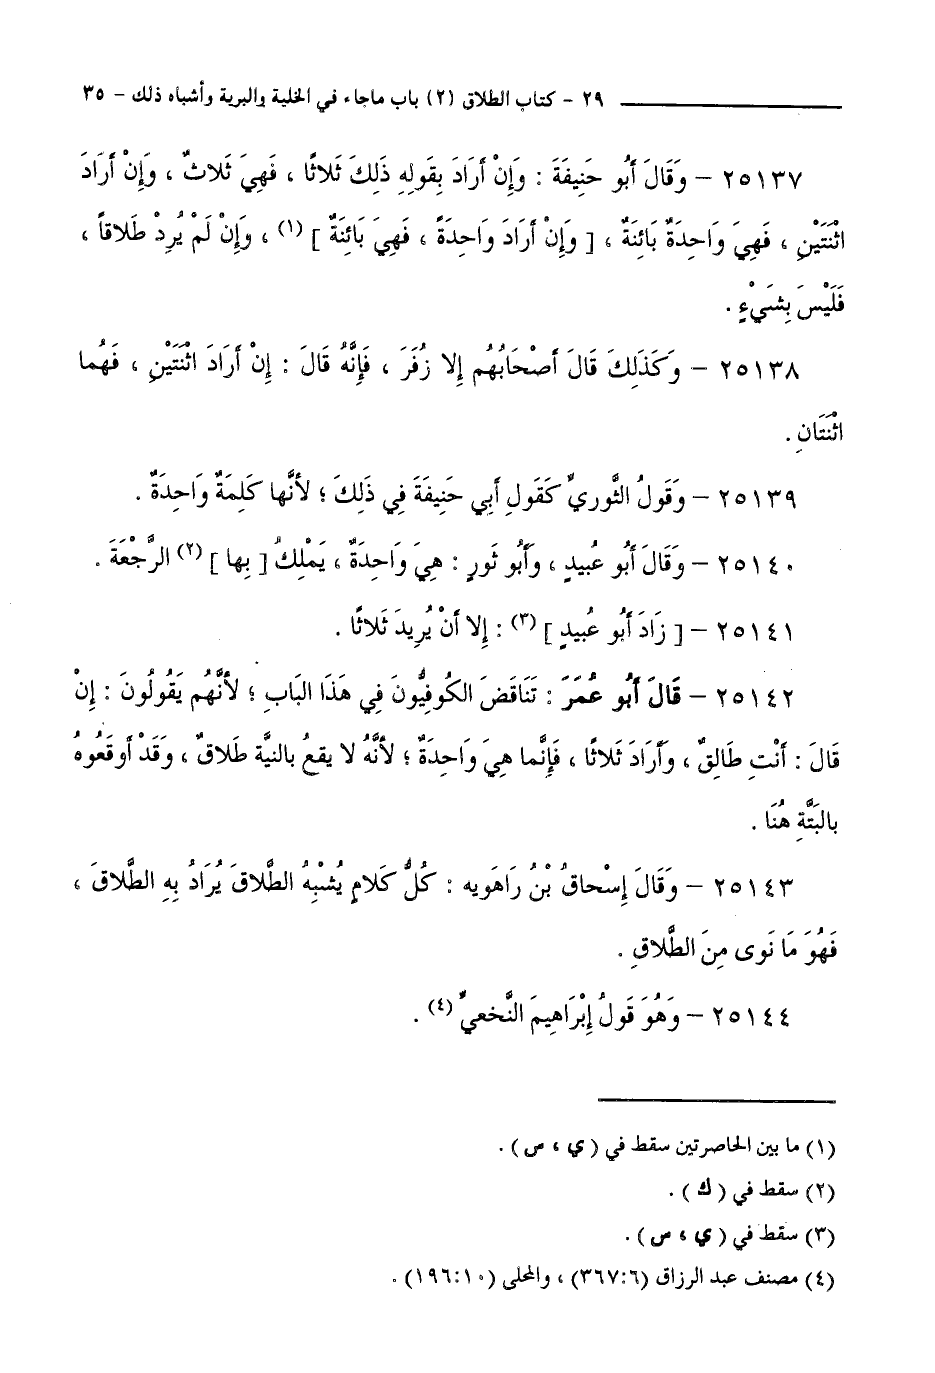 ٢٩ - كتاب الطلاق (٢) باب ماجاء في الخلية والبرية وأشباه ذلك - ٣٥
٢٥١٣٧ - وَقَالَ أَبُو حَنِيفَةَ : وَإِنْ أَرَادَ بِقَولِهِ ذَلِكَ ثَلاثًا ، فَهِيَ ثَلاثٌ ، وَإِنْ أَرَادَ
اثْنَتَيْنِ ، فَهِيَ وَاحِدَةٌ بَائِنَةٌ ، [ وَإِنْ أَرَادَ وَاحِدَةً ، فَهِيَ بَائِنَةٌ ] (١) ، وَإِنْ لَمْ يُرِدْ طَلاقاً ،
فَلَيْسَ بِشَيْءٍ .
٢٥١٣٨ - وَكَذَلِكَ قَالَ أَصْحَابُهُم إِلا زُفَرَ ، فَإِنَّهُ قَالَ : إِنْ أَرَادَ اثْنَتَيْنِ ، فَهُما
اثْنَتَانِ .
٢٥١٣٩ - وَقَولُ الثَّوريِّ كَقَولِ أَبِي حَنِيفَةَ فِي ذَلِكَ ؛ لأنَّها كَلِمَةٌ وَاحِدَةٌ .
٢٥١٤٠ - وَقَالَ أَبُو عُبيدٍ ، وَأَبُو ثَورٍ : هِيَ وَاحِدَةٌ ، يَمْلِكُ [ بِها ] (٢) الرَّجْعَةَ .
٢٥١٤١ - [ زَادَ أَبُو عُبيدٍ ] (٣) : إِلا أَنْ يُرِيدَ ثَلاثًا .
٢٥١٤٢ - قَالَ أَبُو عُمَرَ : تَنَاقَضَ الكُوفِيُّونَ فِي هَذَا البَابِ ؛ لأنَّهُم يَقُولُونَ : إِنْ
قَالَ : أَنْتِ طَالِقٌ ، وَأَرَادَ ثَلاثًا ، فَإِنَّما هِيَ وَاحِدَةٌ ؛ لأنَّهُ لا يقعُ بالنية طَلاقٌ ، وَقَدْ أَوقَعُوهُ
بالبَتَّةِ هُنَا .
٢٥١٤٣ - وَقَالَ إِسْحاقُ بْنُ رَاهَويه : كُلُّ كَلامٍ يُشبْهُ الطَّلاقَ يُرَادُ بِهِ الطَّلاقَ ،
فَهُوَ مَا نَوى مِنَ الطَّلاقِ .
٢٥١٤٤ - وَهُوَ قَولُ إِبْرَاهِيمَ النَّخعيِّ (٤) .
(١) ما بين الحاصرتين سقط في ( ي ، ص ) .
(٢) سقط في ( ك ) .
(٣) سقط في ( ي ، ص ) .
(٤) مصنف عبد الرزاق (٣٦٧:٦) ، والمحلى (١٩٦:١٠) .